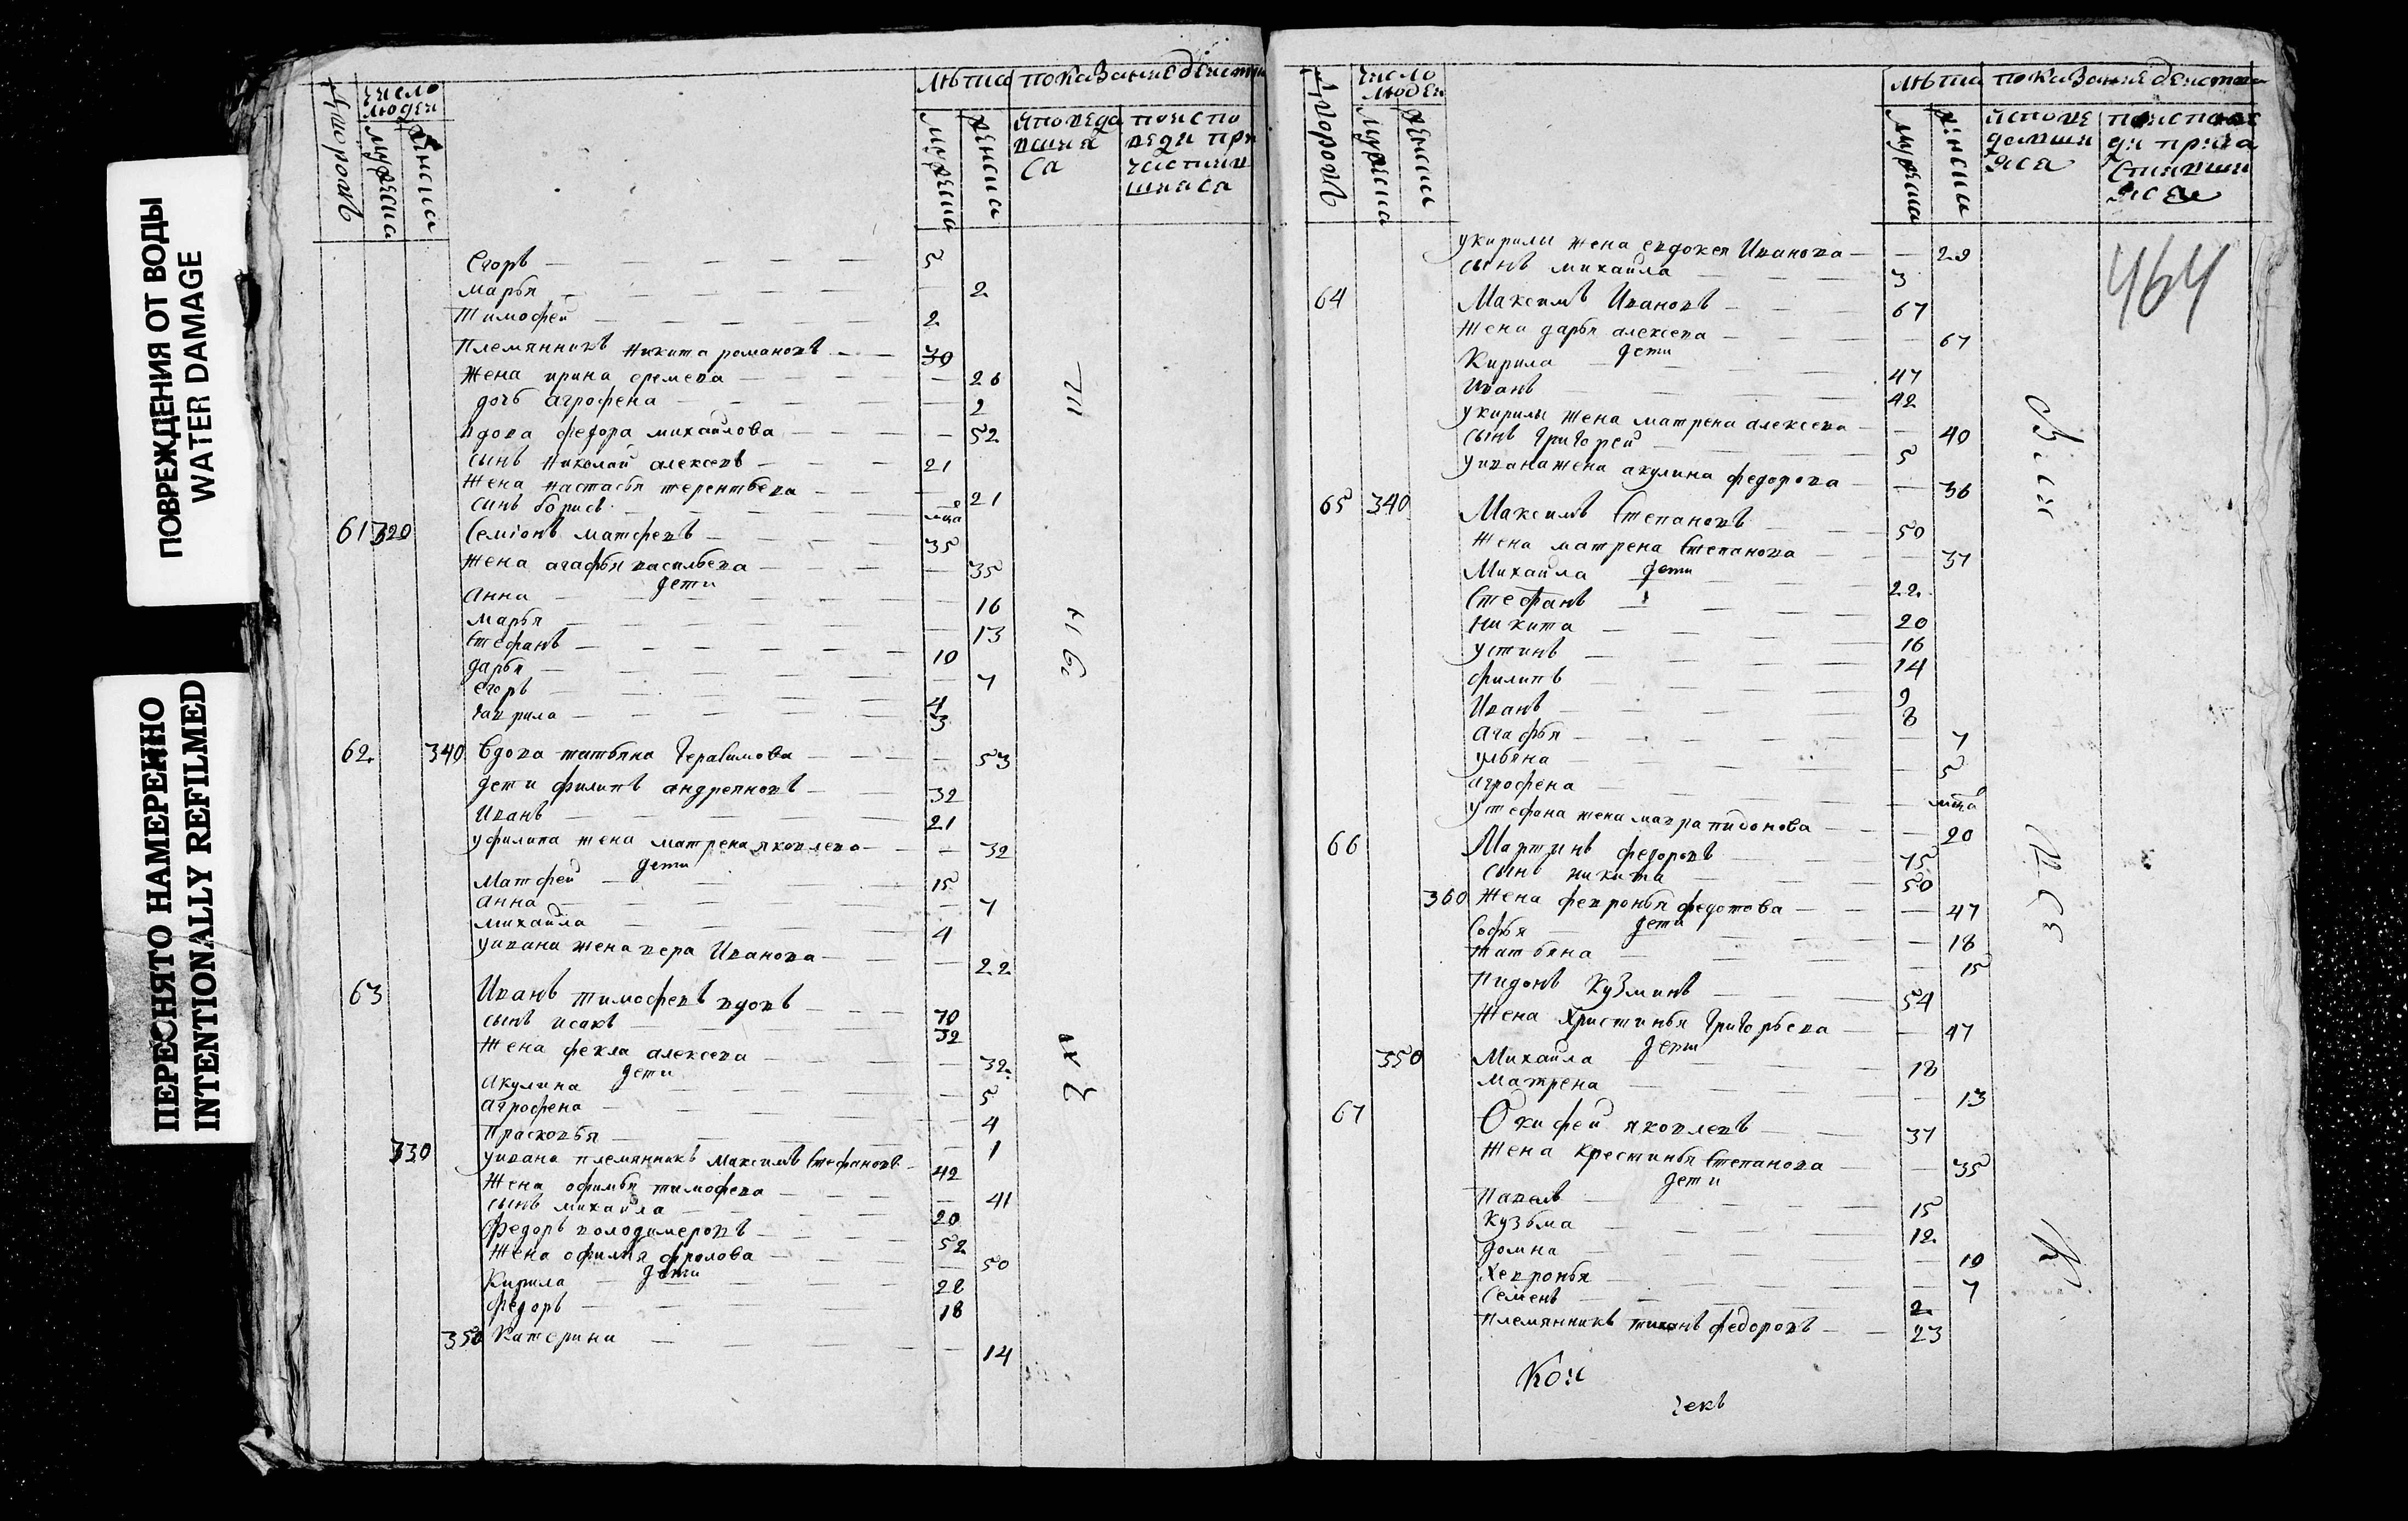 ПОВРЕЖДЕНИЯ ОТ ВОДЫ
WATER DAMAGE
ПЕРЕСНЯТО НАМЕРЕННО
INTENTIONALLY REFILMED
число людей
мужеска
женска
лѣта
показание
мужеска
женска
Егоръ 5
марья 2
Тимофей 2
Племянникъ никита романовъ 30
жена ирина еремева 26
дочь агрофена 2
вдова федора михайлова 52
сынъ николай алексевъ 21
жена настасья терентьева 21
сынъ борисъ
61 320 Семіонъ матфевъ 35
жена агафья васильева 35
дети
анна 16
марья 13
стефанъ 10
дарья 7
егоръ 4
гаврила 3
62. 340 Вдова татьяна герасимова 53
дети филипъ андреяновъ 32
Иванъ 21
уфилипа жена матрена яковлева 32
дети
матфей 15
анна 7
михайла 4
уивана жена вера Иванова 22
63 Иванъ тимофевъ вдовъ 70
сынъ исакъ 32
жена фекла алексева 32.
дети
Акулина 5
агрофена 4
прасковья 1
330 уивана племянникъ максимъ стефановъ 42
жена офимья тимофева 41
сынъ михайла 20
Федоръ володимеровъ 52
жена офимья фролова 50
дети
Кирила 28
федоръ 18
350 Катерина 14
число людей
мужеска
женска
лѣта
показание
мужеска
женска
464
укирилы жена евдокея Иванова 29
сынъ михайла 3
64 Максимъ Ивановъ 67
жена дарья алексева 67
дети
Кирила 47
Иванъ 42
укирилы жена матрена алексева 40
сынъ григорей 5
уивана жена акулина федорова 36
65 340 Максимъ Степановъ 50
жена матрена Степанова 37
дети
Михайла 22.
Стефанъ 20
никита 16
устинъ 14
филипъ 9
Иванъ 8
агафья 7
ульяна 5
агрофена
устефана жена мавра пидонова 20
66 Мартинъ федоровъ 75
сынъ никита 50
360 жена февронья федотова 47
дети
Софья 18
татьяна 15
пидонъ Кузминъ 54
жена христинья григорьева 47
дети
350 Михайла 18
матрена 13
67 Окифей яковлевъ 37
жена крестинья степанова 35
дети
павелъ 15
кузьма 12.
домна 10
хевронья 7
семенъ 2.
племянникъ тихонъ федоровъ 23